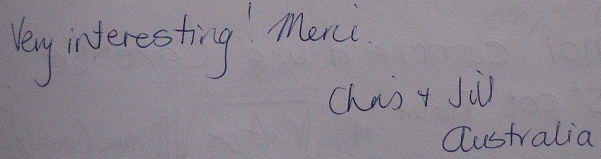 Very interesting! Merci.
Chris + Jill
Australia